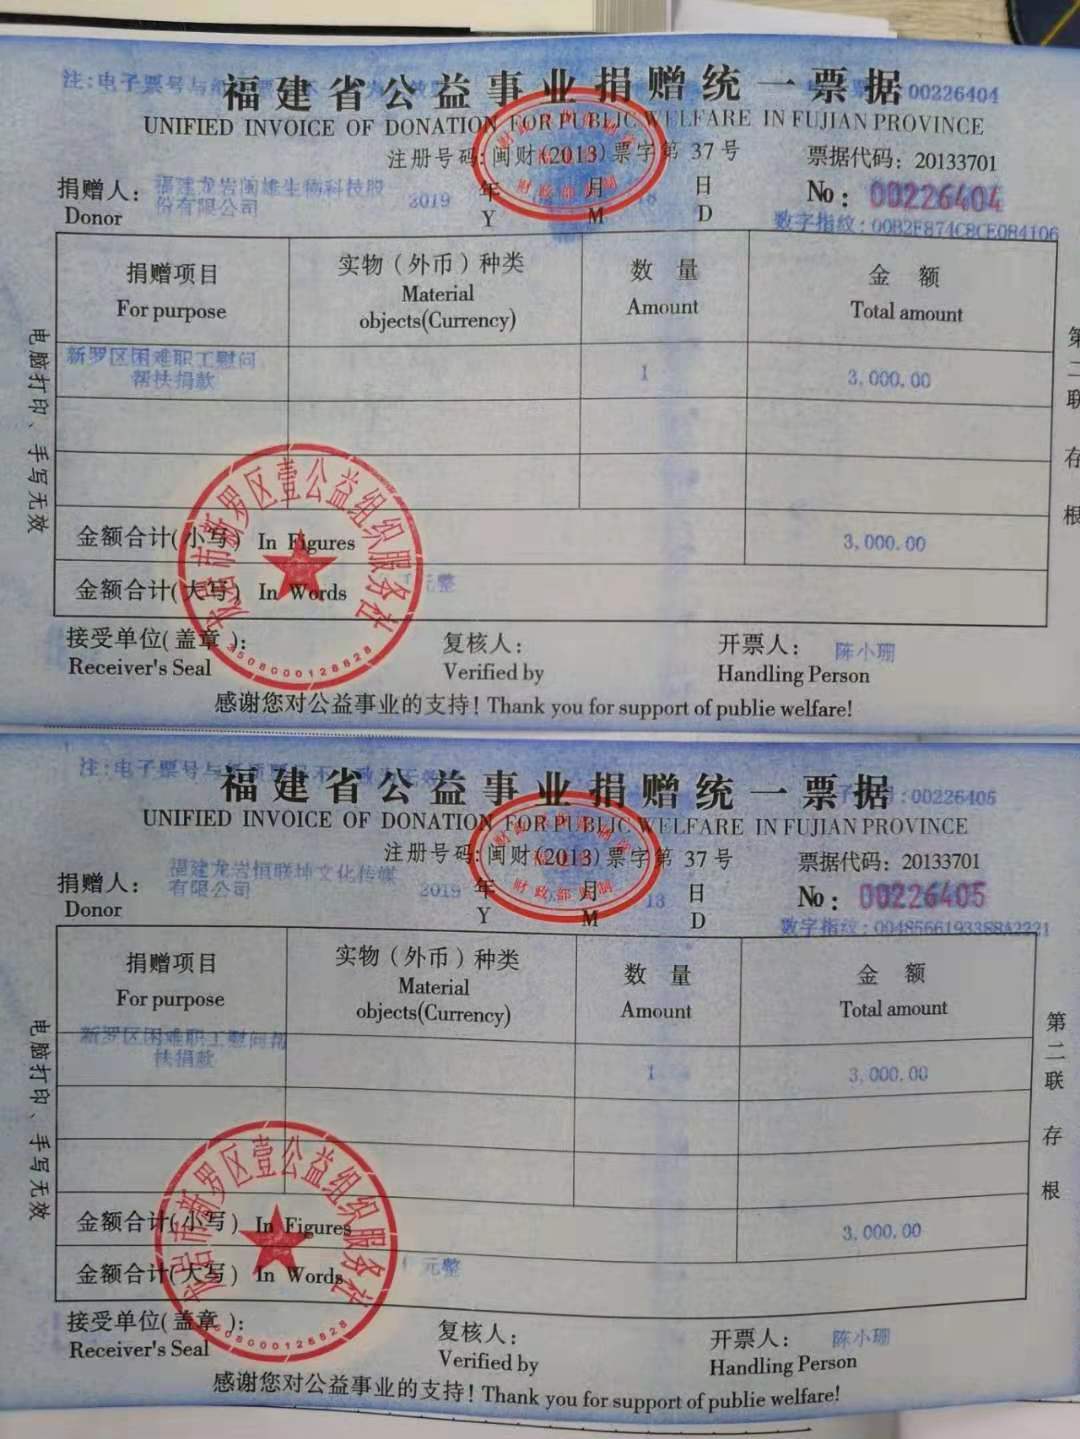 福建省公益事业捐赠统一票据
00226404
UNIFIED INVOICE OF DONATION FOR PUBLIC WELFARE IN FUJIAN PROVINCE
注册号码: 闽财(2013)票字第 37号
票据代码: 20133701
捐赠人:
Donor
福建龙岩闽雄生物科技股
份有限公司
2019 年 月 日
Y M D
No: 00226404
数字指纹:00B2E874C8CE084106
捐赠项目
For purpose
实物（外币）种类
Material
objects(Currency)
数 量
Amount
金 额
Total amount
新罗区困难职工慰问
帮扶捐款
1
3,000.00
金额合计(小写) In Figures
3,000.00
金额合计(大写) In Words
元整
接受单位(盖章):
Receiver's Seal
复核人:
Verified by
开票人:
Handling Person
陈小珊
感谢您对公益事业的支持! Thank you for support of publie welfare!
电脑打印、手写无效
第二联 存根
龙岩市新罗区壹公益组织服务社
3508000128828
福建省公益事业捐赠统一票据
:00226405
UNIFIED INVOICE OF DONATION FOR PUBLIC WELFARE IN FUJIAN PROVINCE
注册号码: 闽财(2013)票字第 37号
票据代码: 20133701
捐赠人:
Donor
福建龙岩恒联坤文化传媒
有限公司
2019 年 月 13 日
Y M D
No: 00226405
数字指纹:0048566193388A2221
捐赠项目
For purpose
实物（外币）种类
Material
objects(Currency)
数 量
Amount
金 额
Total amount
新罗区困难职工慰问帮
扶捐款
1
3,000.00
金额合计(小写) In Figures
3,000.00
金额合计(大写) In Words
元整
接受单位(盖章):
Receiver's Seal
复核人:
Verified by
开票人:
Handling Person
陈小珊
感谢您对公益事业的支持! Thank you for support of publie welfare!
电脑打印、手写无效
第二联 存根
龙岩市新罗区壹公益组织服务社
3508000128828